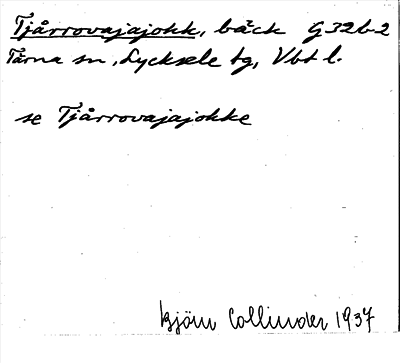 Tjårrovajajokk, bäck G 32 b 2
Tärna sn, Lycksele tg, Vbt l.
se Tjårrovajajokke
Björn Collinder 1937